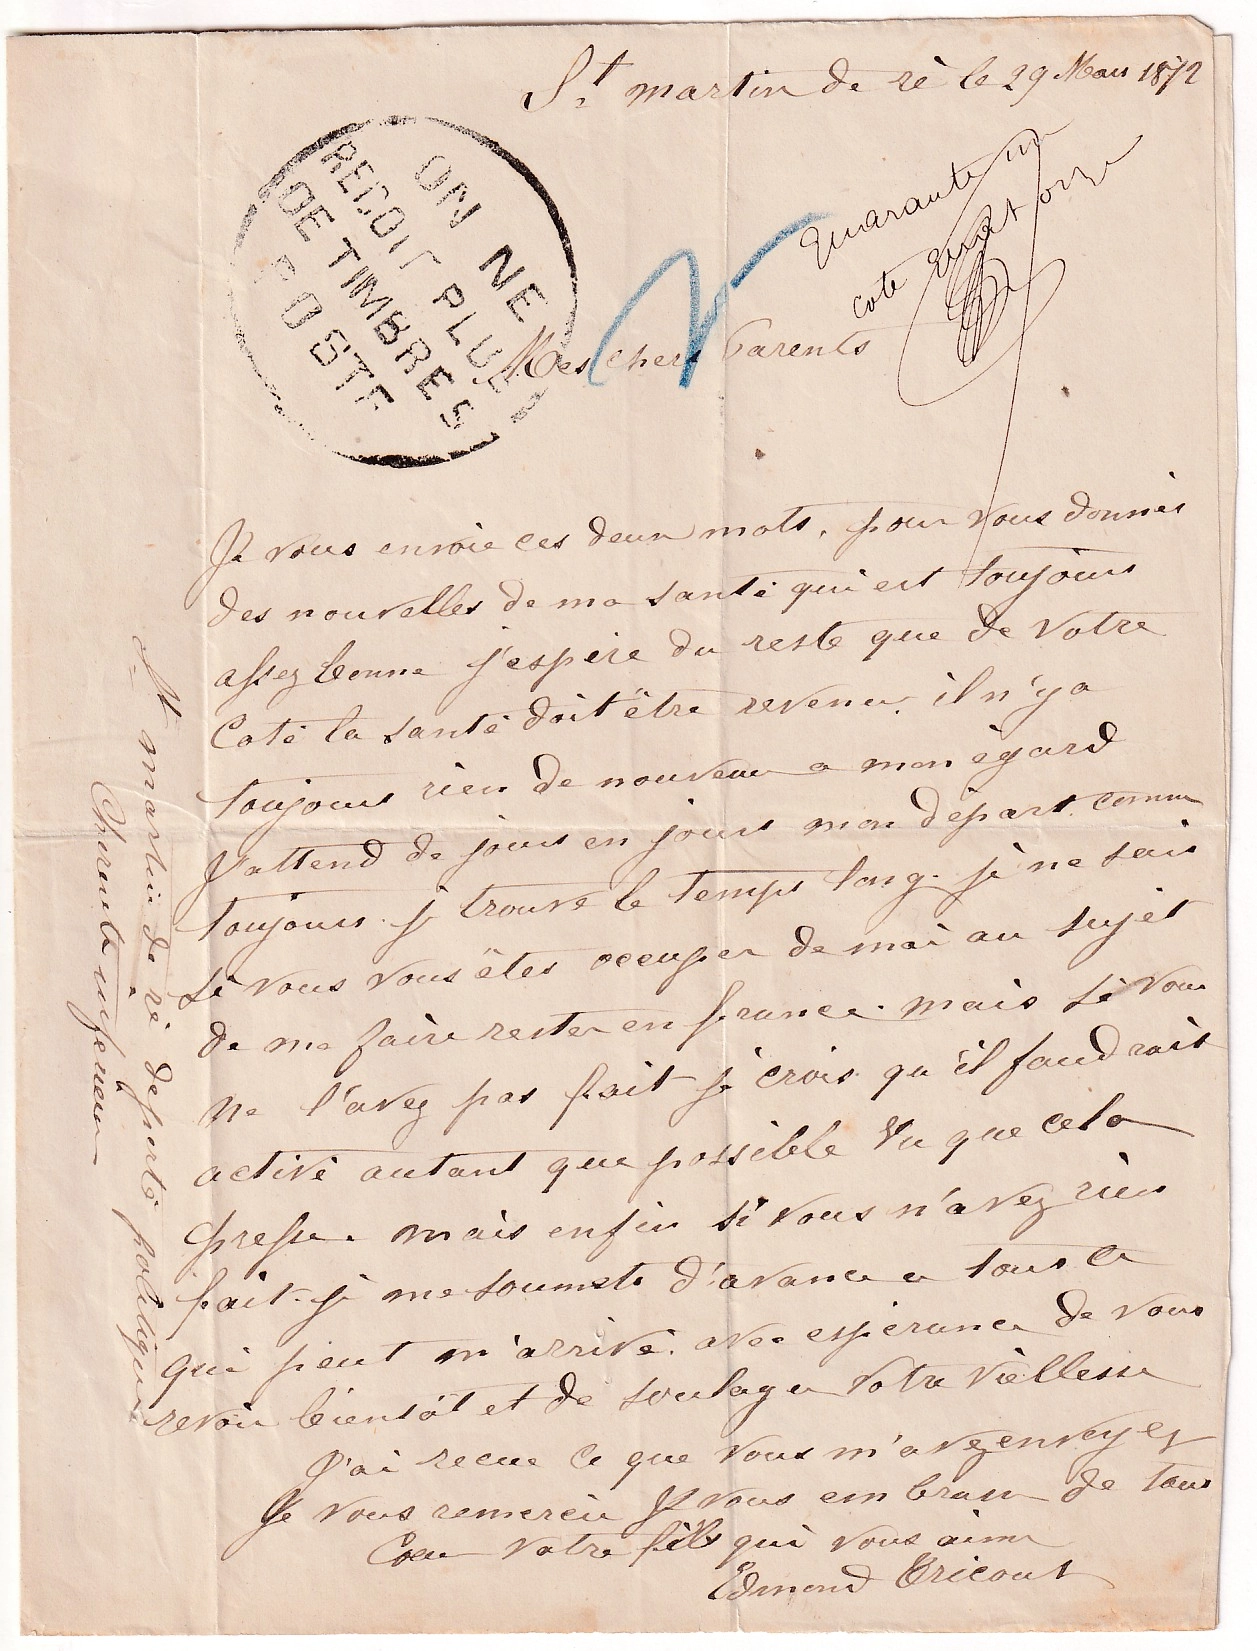 St martin de ré le 29 Mars 1872
ON NE
REÇOIT PLUS
DE TIMBRES
POSTE
quarante un
cote
Mes chers Parents
Je vous envoie ces deux mots, pour vous donnés
des nouvelles de ma santé qui est toujours
assez bonne j'espère du reste que de votre
Coté la santé doit être revenu. il n'y a
toujours rien de nouveau a mon égard
J'attend de jours en jours mon départ. comme
toujours. je trouve le temps long. je ne sais
si vous vous êtes occuper de moi au sujet
de me faire rester en france. mais si vous
ne l'avez pas fait je crois qu'il faudrait
activé autant que possible Vu que cela
presse. mais enfin si vous n'avez rien
fait. je me soumets d'avance a tous ce
qui peut m'arrivé. avec espérance de vous
revoir bientôt et de soulager votre viellesse
J'ai recue ce que vous m'avez envoyez
Je vous remercie Je vous embrasse de tous
Coeur votre fils qui vous aime
Edmond Tricout
St martin de ré déporté politique
Charente inferieur